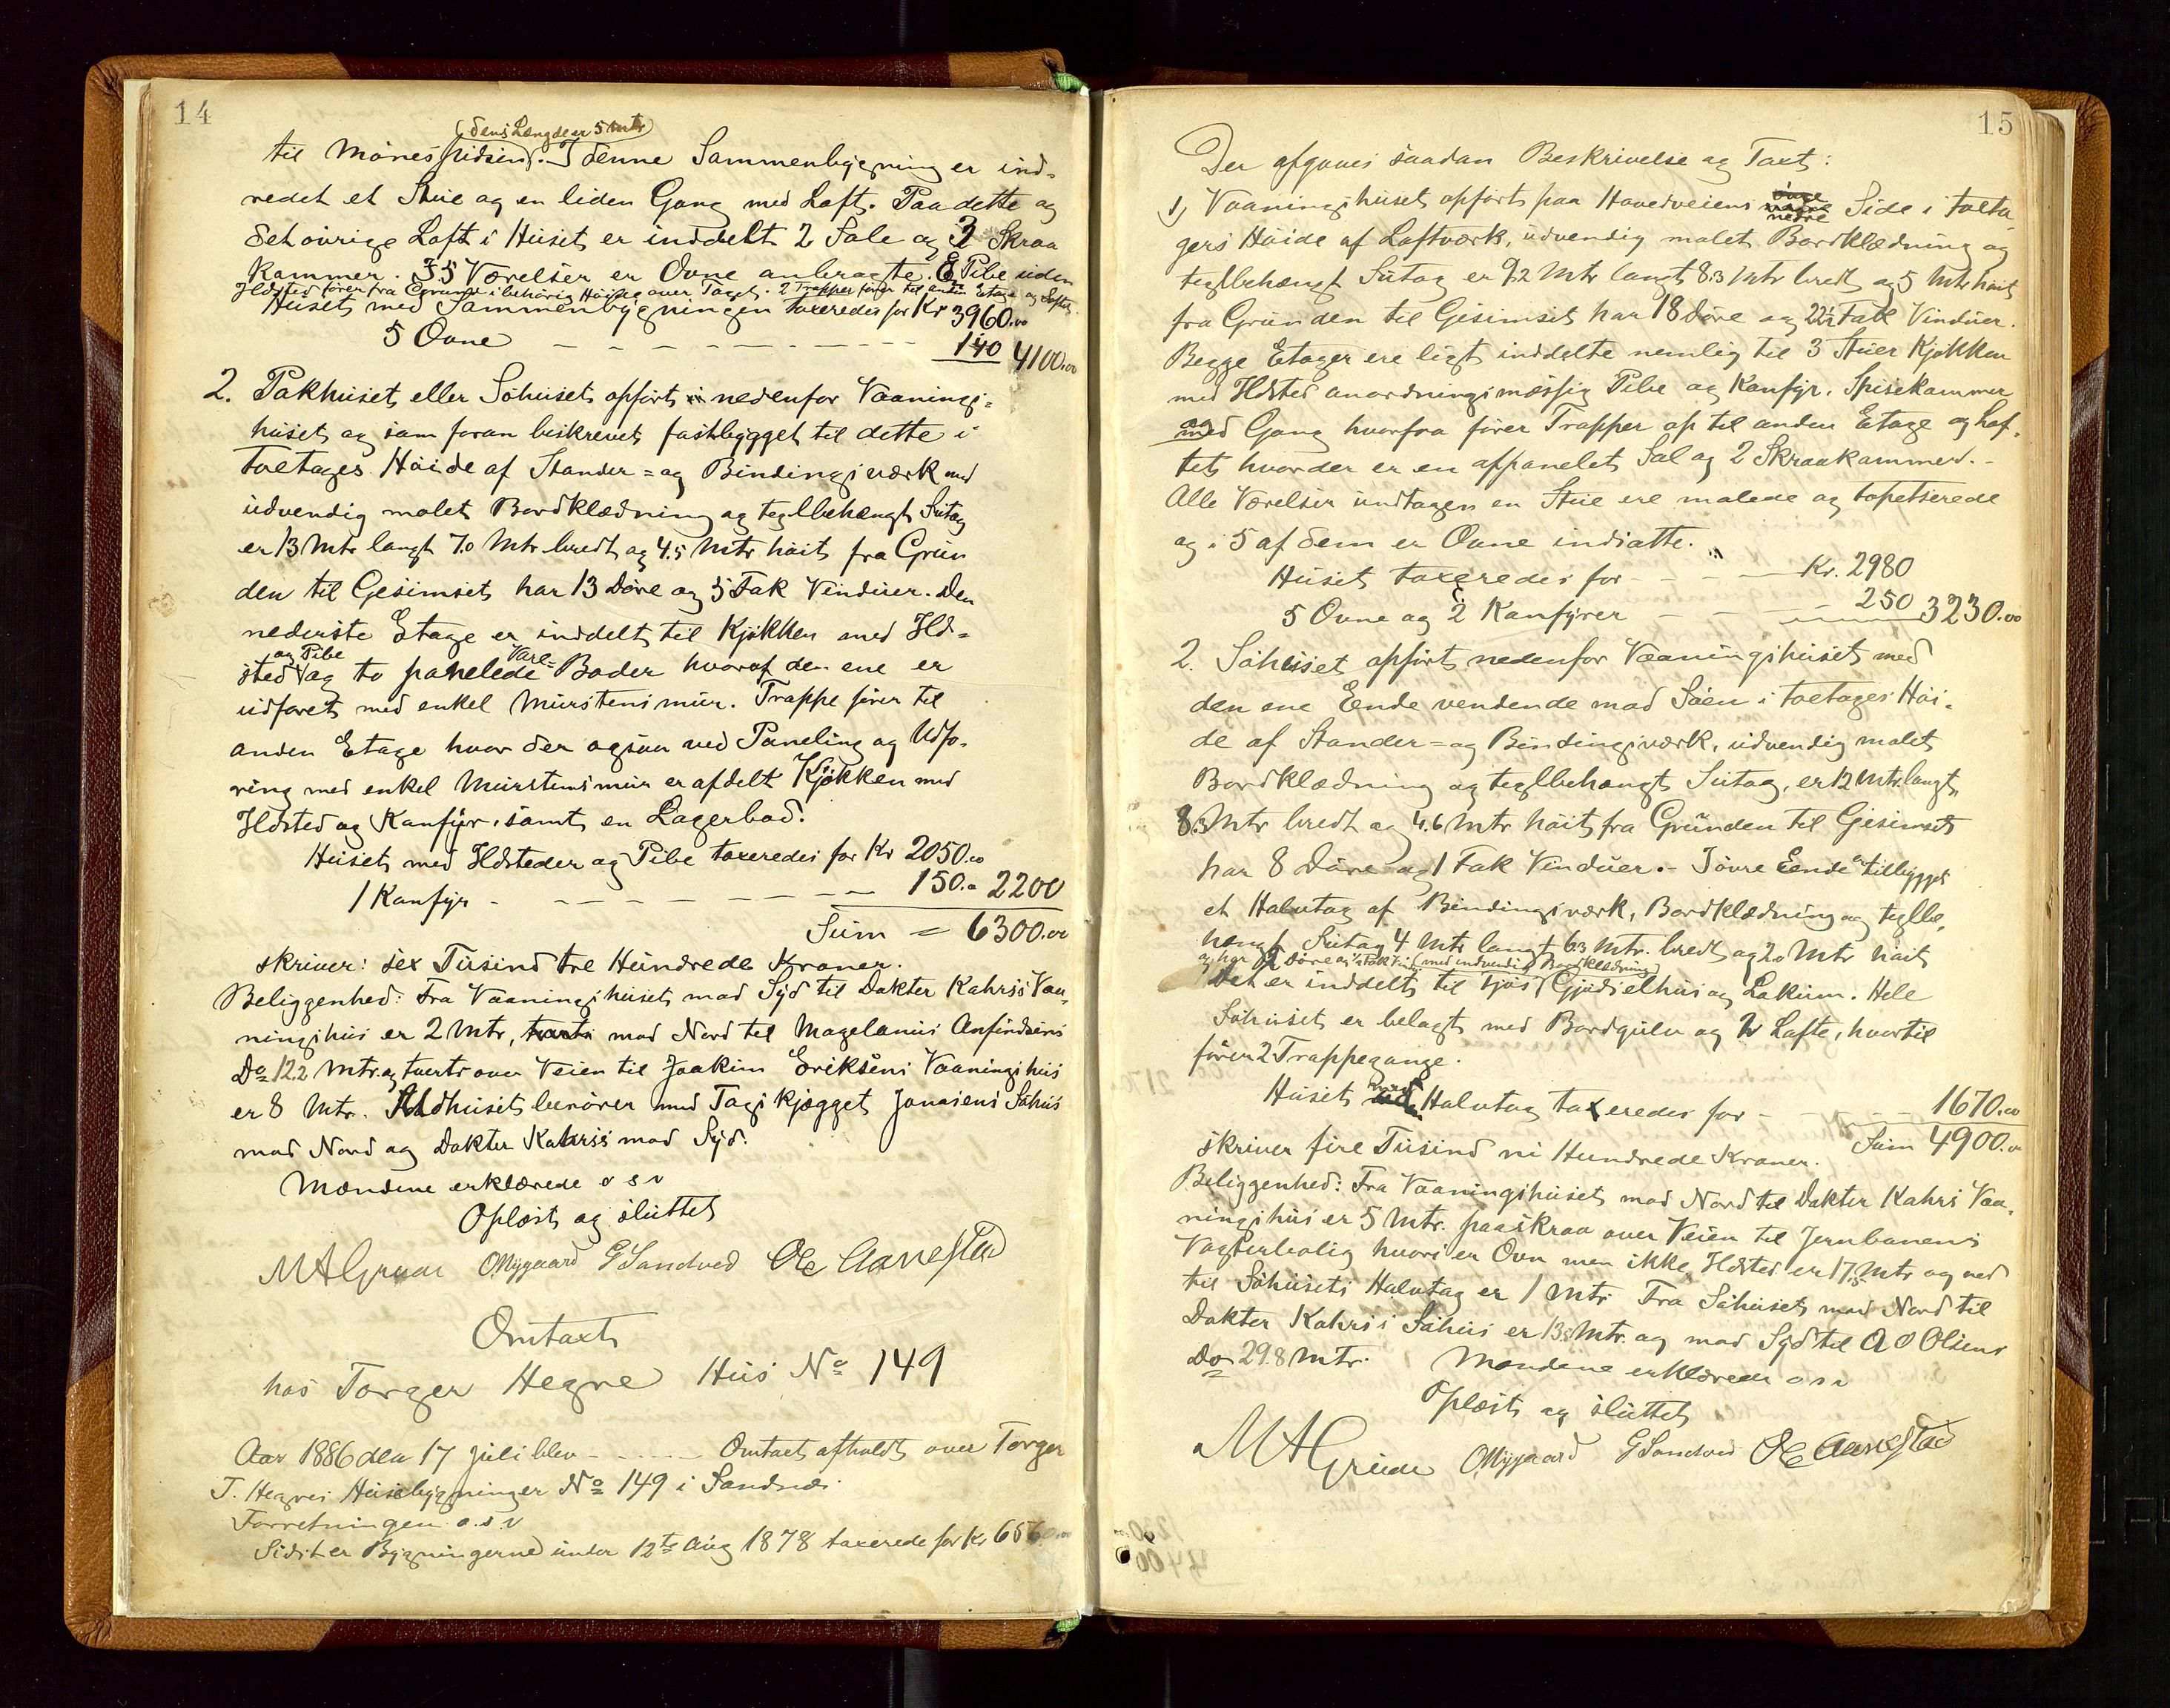 14
(dens Længde er 5 mtr)
til Mønespidsen. I denne Sammenbygning er ind-
redet et Stue og en liden Gang med Loft. Paa dette og
det øvrige Loft i Huset er inddelt 2 Sale og 3 Skraa
kammer. I 5 Værelser er Ovne anbragte. E Pibe uden
Ildsted fører fra Grund i behørig Høide over Taget. 2 Trapper fører til anden Etage og Loftet.
Huset med Sammenbygningen taxeredes for Kr 3960.00
5 Ovne - - - - - 140 4100.00
2. Pakhuset eller Søhuset opført nedenfor Vaanings-
huset og som foran beskrevet fastbygget til dette i
toetages Høide af Stander- og Bindingsværk med
udvendig malet Bordklædning og teglbehængt Sutag
er 13 Mtr langt 7.0 Mtr bredt og 4.5 Mtr høit fra Grun
den til Gesimset har 13 Døre og 5 Fak Vinduer. Den
nederste Etage er inddelt til Kjøkken med Ild-
og Pibe Vare-
sted og to panelede Boder hvoraf den ene er
udforet med enkel Murstensmur. Trappe fører til
anden Etage hvor der ogsaa ved Paneling og Udfo-
ring med enkel Murstensmur er afdelt Kjøkken med
Ildsted og Kanfyr, samt en Lagerbod.
Huset med Ildsteder og Pibe taxeredes for Kr 2050.00
1 Kanfyr - - - - - - 150.00 2200
Sum = 6300.00
skriver: sex Tusind tre Hundrede Kroner.
Beliggenhed: Fra Vaaningshuset mod Syd til Dokter Kahrs's Vaa-
ningshus er 2 Mtr, mod Nord til Magelanus Anfindsens
Do 12.2 Mtr. og tverts over Veien til Joakim Eriksens Vaaningshus
er 8 Mtr. Ildhuset berører med Tagskjægget Jonasens Søhus
mod Nord og Dokter Kahrs's mod Syd.
Mændene erklærede o s v
Oplæst og sluttet
M A Grude O Nygaard G Sandved Ole Aanestad
Omtaxt
hos Torger Hegre Hus No 149
Aar 1886 den 17 Juli blev - - - - Omtaxt afholdt over Torger
T. Hegres Husebygninger No 149 i Sandnes.
Forretningen o. s. v
Sidst er Bygningerne under 12te Aug 1878 taxerede for Kr
15
Der afgaves saadan Beskrivelse og Taxt:
1) Vaaningshuset opført paa Hovedveiens nedre Side i toeta
gers Høide af Laftværk, udvendig malet Bordklædning og
teglbehængt Sutag er 9.2 Mtr langt 8.3 Mtr bredt og 5 Mtr høit
fra Grunden til Gesimset har 18 Døre og 22½ Fak Vinduer.
Begge Etager ere ligt inddelte nemlig til 3 Stuer Kjøkken
med Ildsted anordningsmæssig Pibe og Kanfyr, Spisekammer
og Gang hvorfra fører Trapper op til anden Etage og Lof-
tet hvor der er en afpanelet Sal og 2 Skraakammer. -
Alle Værelser undtagen en Stue ere malede og tapetserede
og i 5 af dem er Ovne indsatte.
Huset taxeredes for - - - Kr. 2980
5 Ovne og 2 Kanfyrer - - - 250 3230.00
2. Søhuset opført nedenfor Vaaningshuset med
den ene Eende vendende mod Søen i toetages Høi-
de af Stander- og Bindingsværk, udvendig malet
Bordklædning og teglbehængt Sutag, er 12 Mtr. langt,
8.3 Mtr bredt og 4.6 Mtr høit fra Grunden til Gesimset
har 8 Døre og 1 Fak Vinduer. - I øvre Eende er tilbygget
et Halvtag af Bindingsværk, Bordklædning og teglbe-
hængt Sutag 4 Mtr langt 6.3 Mtr. bredt og 2.0 Mtr høit
og har 2 Døre og ½ Fak Vind. (med indvendig Bordklædning)
Det er inddelt til Fjøs, Gjødselhus og Lokum. Hele
Søhuset er belagt med Bordgulv og 2 Lofte, hvortil
fører 2 Trappegange.
Huset med Halvtag taxeredes for - - - - 1670.00
Sum 4900.00
skriver fire Tusind ni Hundrede Kroner.
Beliggenhed: Fra Vaaningshuset mod Nord til Dokter Kahrs Vaa-
ningshus er 5 Mtr. paaskraa over Veien til Jernbanens
Vogterbolig hvori er Ovn men ikke Ildsted er 17.5 Mtr og ned
til Søhusets Halvtag er 1 Mtr. Fra Søhuset mod Nord til
Dokter Kahrs's Søhus er 13.5 Mtr. og mod Syd til A O Olsens
Do 29.8 Mtr. Mændene erklærede o s v
Oplæst og sluttet
M A Grude O Nygaard G Sandved Ole Aanestad